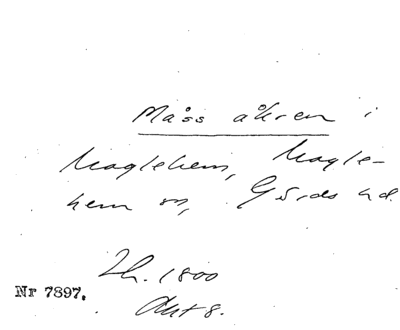 Måss åkren i
Maglehem, Magle-
hem sn, Gärds hd.
Lh. 1800
Akt 8.
Nr 7897.